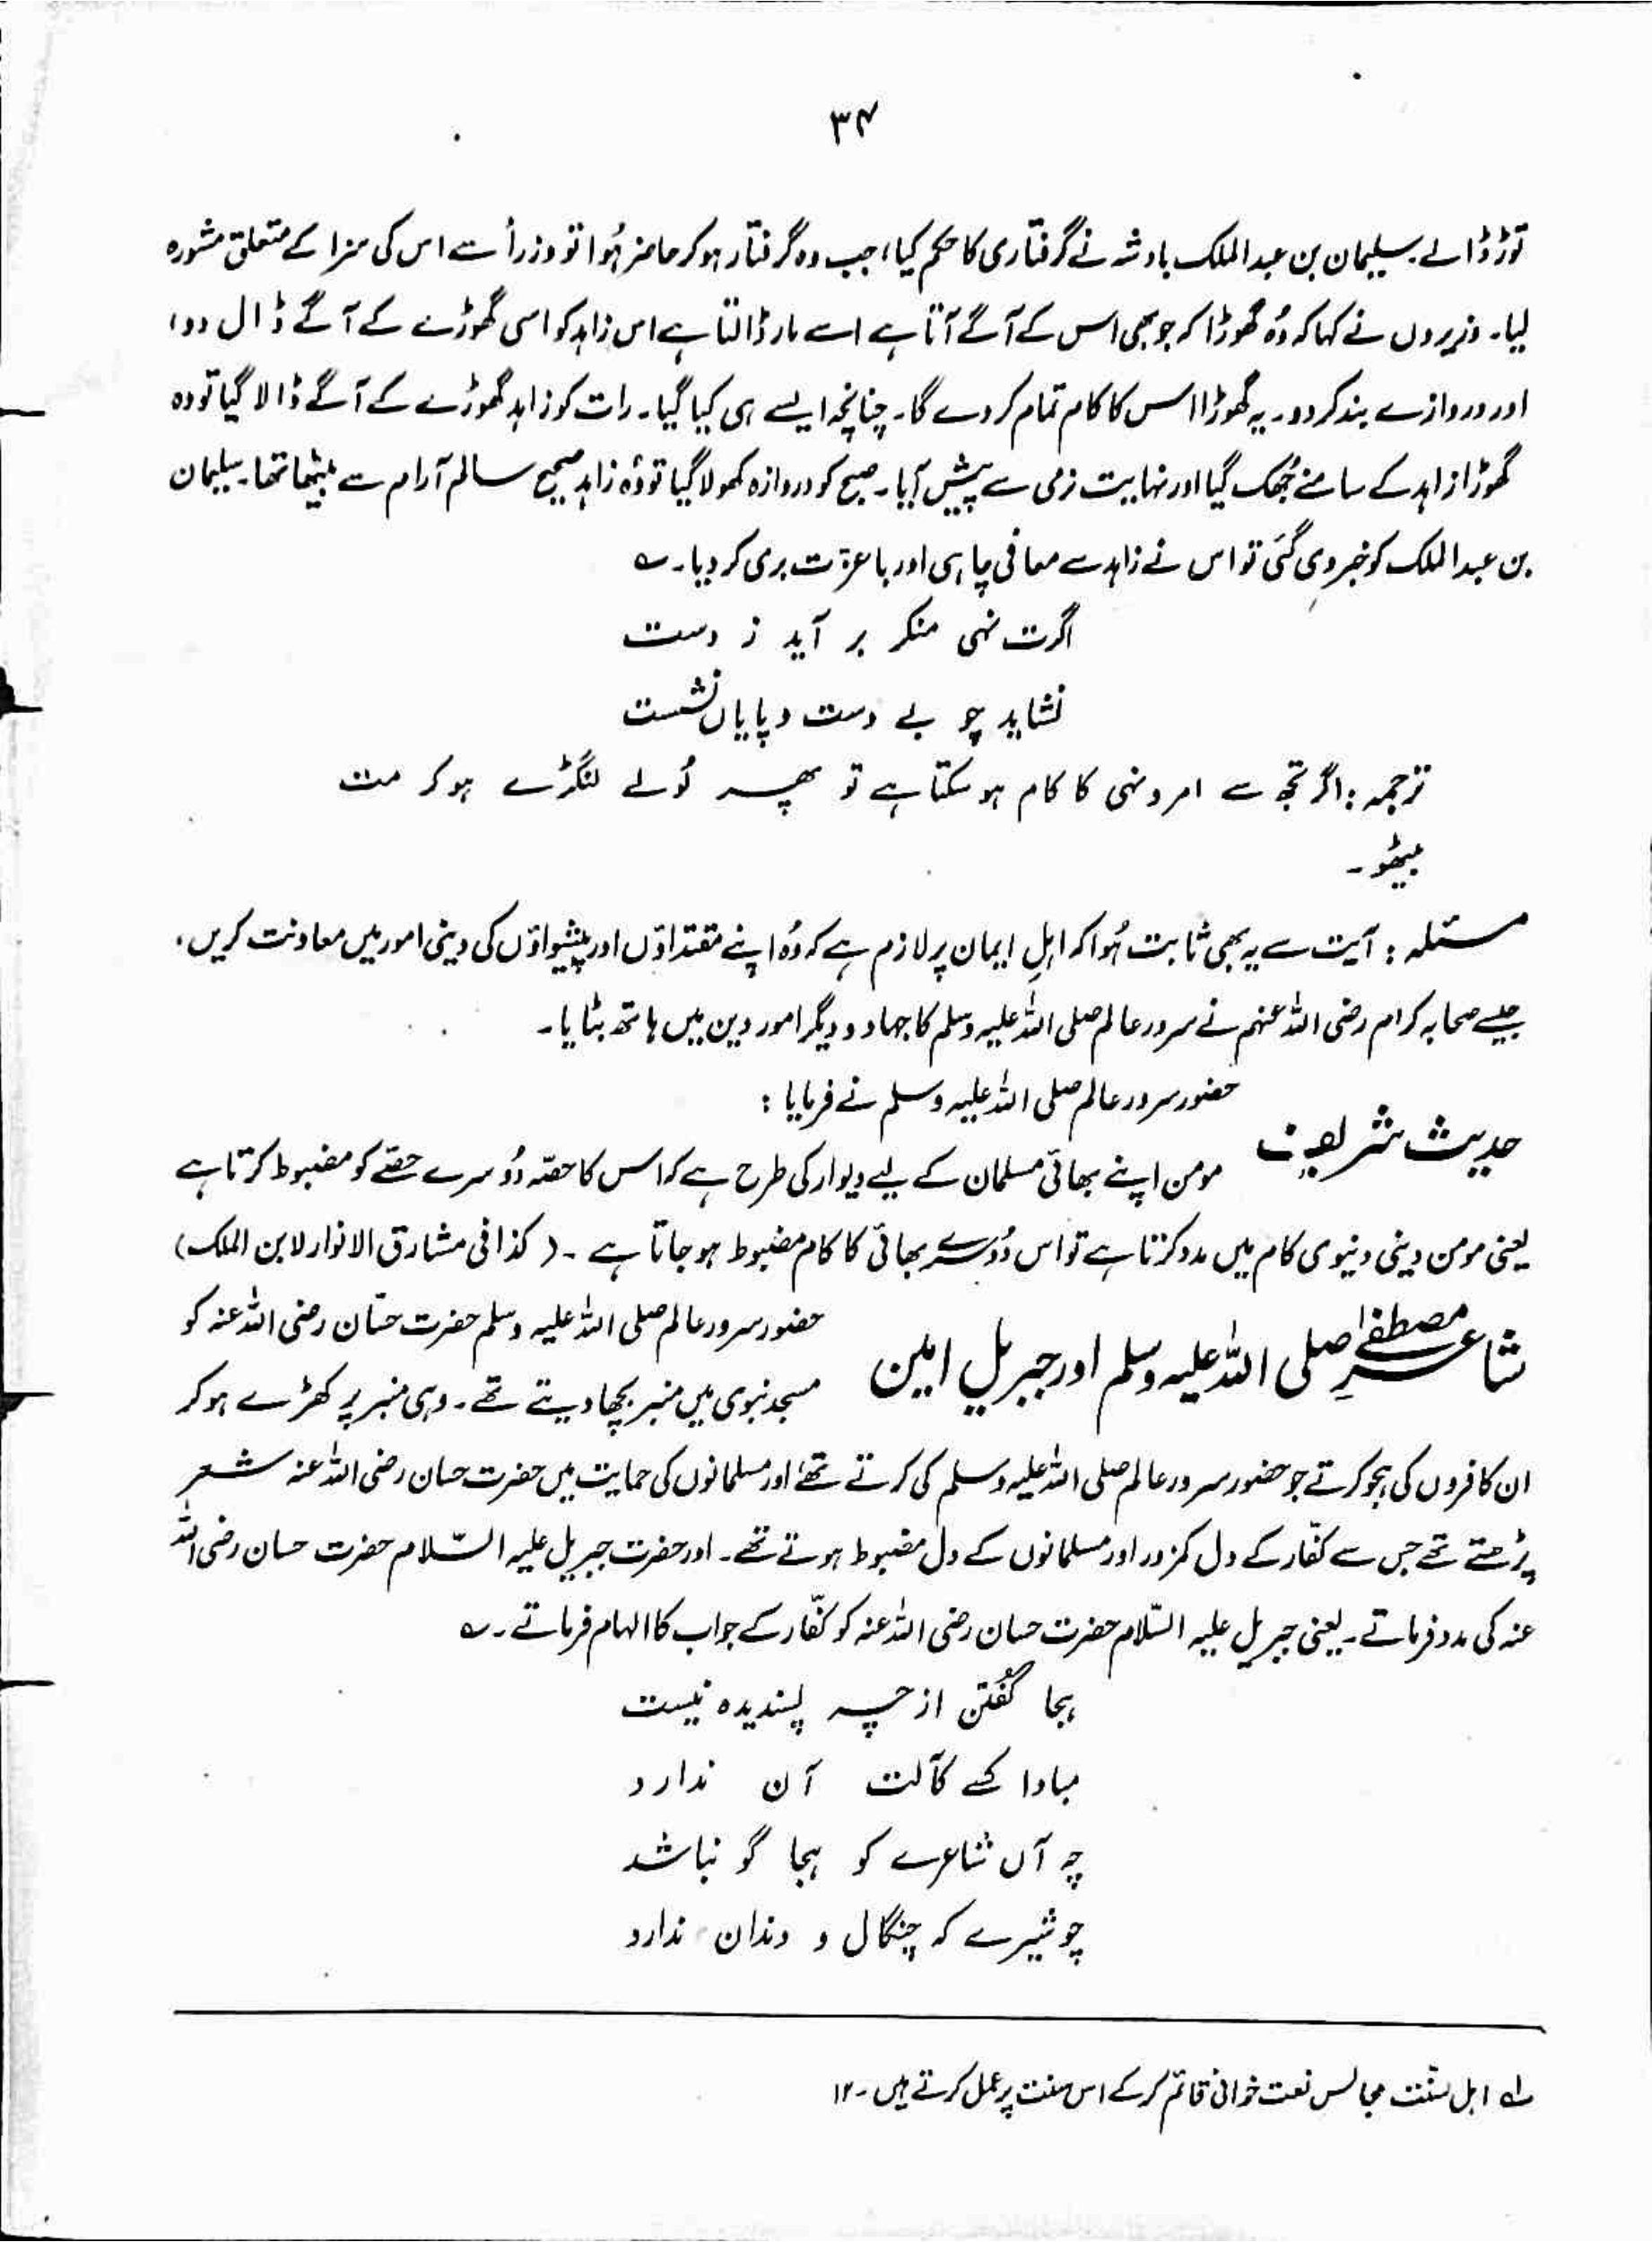 ۳۴
توڑ ڈالے۔ سلیمان بن عبد الملک بادشہ نے گرفتاری کا حکم کیا، جب وہ گرفتار ہو کر حاضر ہُوا تو وزرأ سے اس کی سزا کے متعلق مشورہ
لیا۔ وزیروں نے کہا کہ وُہ گھوڑا کہ جو بھی اس کے آگے آتا ہے اسے مار ڈالتا ہے اس زاہد کو اسی گھوڑے کے آگے ڈال دو،
اور دروازے بند کر دو۔ یہ گھوڑا اس کا کام تمام کر دے گا۔ چنانچہ ایسے ہی کیا گیا۔ رات کو زاہد گھوڑے کے آگے ڈالا گیا تو وہ
گھوڑا زاہد کے سامنے جُھک گیا اور نہایت نرمی سے پیش آیا۔ صبح کو دروازہ کھولا گیا تو وُہ زاہد صحیح سالم آرام سے بیٹھا تھا۔ سلیمان
بن عبد الملک کو خبر دی گئی تو اس نے زاہد سے معافی چاہی اور باعزّت بری کر دیا۔ ؎
اگرت نہی منکر بر آید ز دست
نشاید چو بے دست و پایاں نشست
ترجمہ : اگر تجھ سے امر و نہی کا کام ہو سکتا ہے تو پھر لُولے لنگڑے ہو کر مت
بیٹھو۔
مسئلہ : آیت سے یہ بھی ثابت ہُوا کہ اہلِ ایمان پر لازم ہے کہ وُہ اپنے مقتداؤں اور پیشیواؤں کی دینی امور میں معاونت کریں،
جیسے صحابہ کرام رضی اللہ عنہم نے سرور عالم صلی اللہ علیہ وسلم کا جہاد و دیگر امور دین میں ہاتھ بٹایا۔
حضور سرور عالم صلی اللہ علیہ وسلم نے فرمایا :
حدیث شریف
مومن اپنے بھائی مسلمان کے لیے دیوار کی طرح ہے کہ اس کا حصّہ دُوسرے حصّے کو مضبوط کرتا ہے
یعنی مومن دینی دنیوی کام میں مدد کرتا ہے تو اس دُوسرے بھائی کا کام مضبوط ہو جاتا ہے ۔ ( کذا فی مشارق الانوار لابن الملک)
شاعرِ مصطفےٰ صلی اللہ علیہ وسلم اور جبریل امین
حضور سرور عالم صلی اللہ علیہ وسلم حضرت حسّان رضی اللہ عنہ کو
مسجد نبوی میں منبر بچھا دیتے تھے۔ وہی منبر پر کھڑے ہو کر
ان کافروں کی ہجو کرتے جو حضور سرور عالم صلی اللہ علیہ وسلم کی کرتے تھے اور مسلمانوں کی حمایت میں حضرت حسان رضی اللہ عنہ شعر
پڑھتے تھے جس سے کفّار کے دل کمزور اور مسلمانوں کے دل مضبوط ہوتے تھے۔ اور حضرت جبریل علیہ السّلام حضرت حسان رضی اللہ
عنہ کی مدد فرماتے۔ یعنی جبریل علیہ السّلام حضرت حسان رضی اللہ عنہ کو کفّار کے جواب کا الہام فرماتے۔ ؎
ہجا گفتن از چہ پسندیدہ نیست
مبادا کسے کآلت آن ندارد
چہ آں شاعرے کو ہجا گو نباشد
چو شیرے کہ چنگال و دندان ندارد
لے اہل سنّت مجالس نعت خوانی قائم کر کے اس سنت پر عمل کرتے ہیں۔۱۲